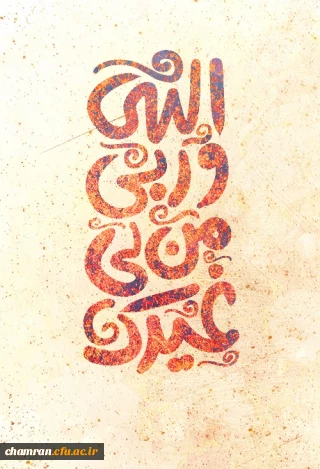 الهی
و ربی
من لی
غیرک
chamran.cfu.ac.ir